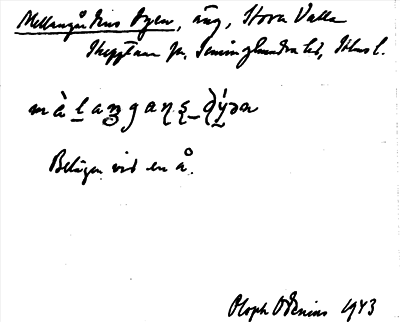 Mellangårdens Dyen, äng, Stora Valla
Skeppstuna sn, Seminghundra hd, Sthms l.
Belägen vid en å.
Oloph Odenius 1943